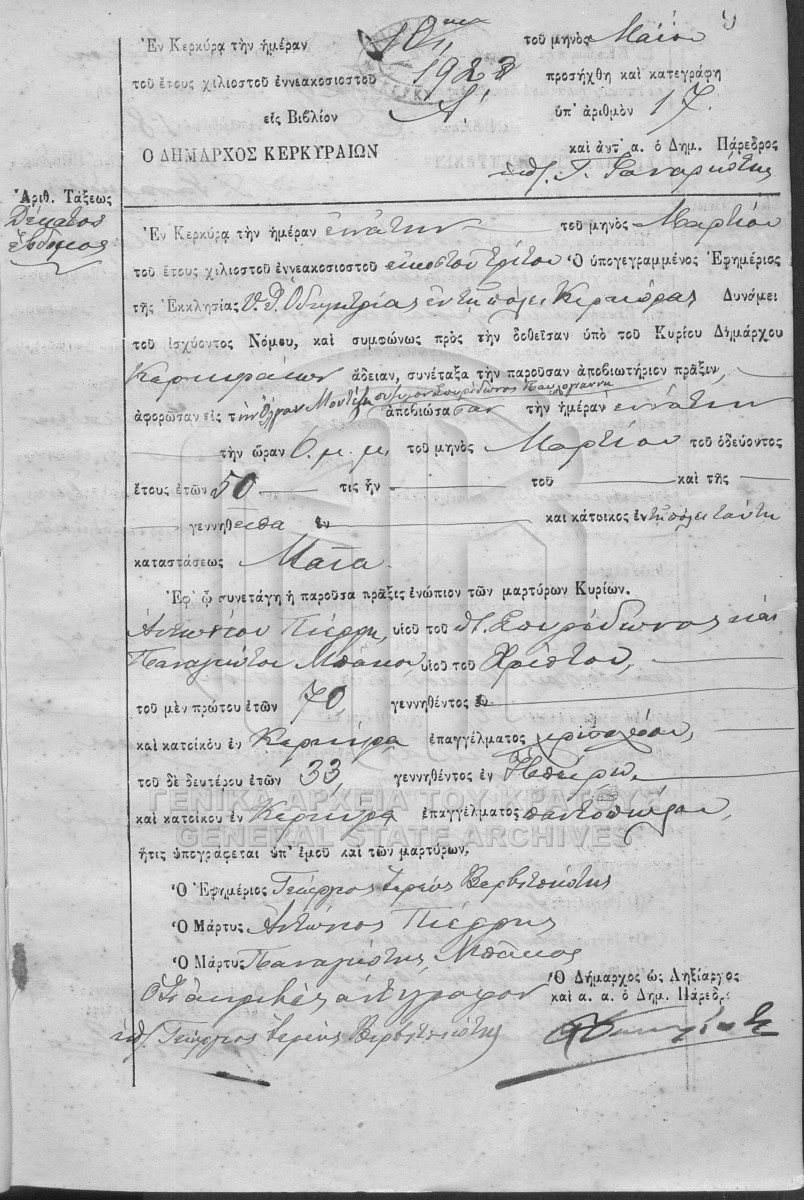 Ἐν Κερκύρᾳ τὴν ἡμέραν 10 τοῦ μηνὸς Μαΐου
τοῦ ἔτους χιλιοστοῦ ἐννεακοσιοστοῦ 1923 προσήχθη καὶ κατεγράφη
εἰς Βιβλίον Α' ὑπ' ἀριθμὸν 17.
Ο ΔΗΜΑΡΧΟΣ ΚΕΡΚΥΡΑΙΩΝ καὶ ἀντ' α. ὁ Δημ. Πάρεδρος
ὑπ. Γ.
Ἀριθ. Τάξεως
Δέκατος
Ἕβδομος
Ἐν Κερκύρᾳ τὴν ἡμέραν ἐννάτην τοῦ μηνὸς Μαρτίου
τοῦ ἔτους χιλιοστοῦ ἐννεακοσιοστοῦ εἰκοστοῦ τρίτου Ὁ ὑπογεγραμμένος Ἐφημέριος
τῆς Ἐκκλησίας Υ. Θ. Ὁδηγητρίας ἐν τῇ πόλει Κερκύρας Δυνάμει
τοῦ ἰσχύοντος Νόμου, καὶ συμφώνως πρὸς τὴν δοθεῖσαν ὑπὸ τοῦ Κυρίου Δημάρχου
Κερκυραίων ἄδειαν, συνέταξα τὴν παροῦσαν ἀποβιωτήριον πρᾶξιν,
σύζυγον Σπυρίδωνος
ἀφορῶσαν εἰς τὴν Ὄλγαν ἀποβιώσασαν τὴν ἡμέραν ἐννάτην
τὴν ὥραν 6 μ. μ. τοῦ μηνὸς Μαρτίου τοῦ ὁδεύοντος
ἔτους ἐτῶν 50 τις ἦν τοῦ καὶ τῆς
γεννηθεῖσα ἐν καὶ κάτοικος ἐν τῇ πόλει ταύτῃ
καταστάσεως Μαῖα
Ἐφ' ᾧ συνετάγη ἡ παροῦσα πρᾶξις ἐνώπιον τῶν μαρτύρων Κυρίων.
Ἀντωνίου Πιέρρη, υἱοῦ τοῦ π. Σπυρίδωνος καὶ
Παναγιώτου Μπάκου, υἱοῦ τοῦ Χρίστου,
τοῦ μὲν πρώτου ἐτῶν 70, γεννηθέντος ἐν
καὶ κατοίκου ἐν Κερκύρα ἐπαγγέλματος
τοῦ δὲ δευτέρου ἐτῶν 33 γεννηθέντος ἐν Ἠπείρῳ
καὶ κατοίκου ἐν Κερκύρα ἐπαγγέλματος παντοπώλου,
ἥτις ὑπογράφεται ὑπ' ἐμοῦ καὶ τῶν μαρτύρων,
Ὁ Ἐφημέριος Γεώργιος Ἱερεὺς Βερβιτσιώτης
Ὁ Μάρτυς Ἀντώνιος Πιέρρης
Ὁ Μάρτυς Παναγιώτης Μπάκος
Ὁ Δήμαρχος ὡς Ληξίαρχος
καὶ α. α. ὁ Δημ. Πάρεδρ:
ἀκριβὲς ἀντίγραφον
ὑπ. Γεώργιος Ἱερεὺς Βερβιτσιώτης
ΓΕΝΙΚΑ ΑΡΧΕΙΑ ΤΟΥ ΚΡΑΤΟΥΣ
GENERAL STATE ARCHIVES